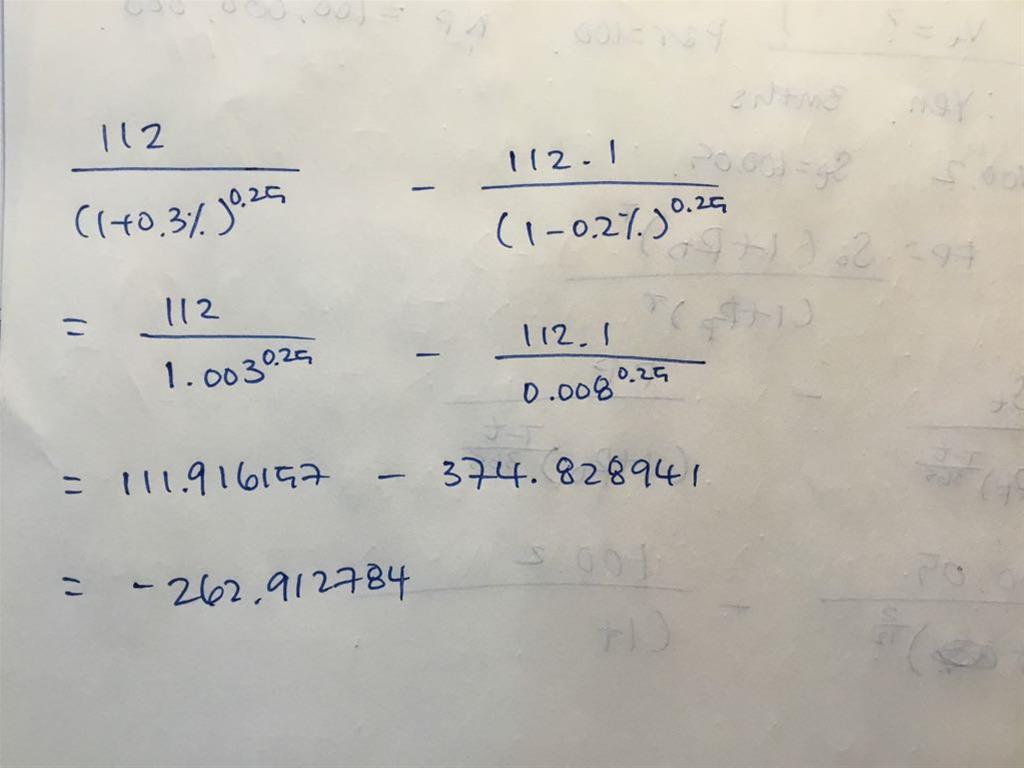 112 / (1+0.3%)^0.25 - 112.1 / (1-0.2%)^0.25
= 112 / 1.003^0.25 - 112.1 / 0.008^0.25
= 111.916157 - 374.828941
= -262.912784